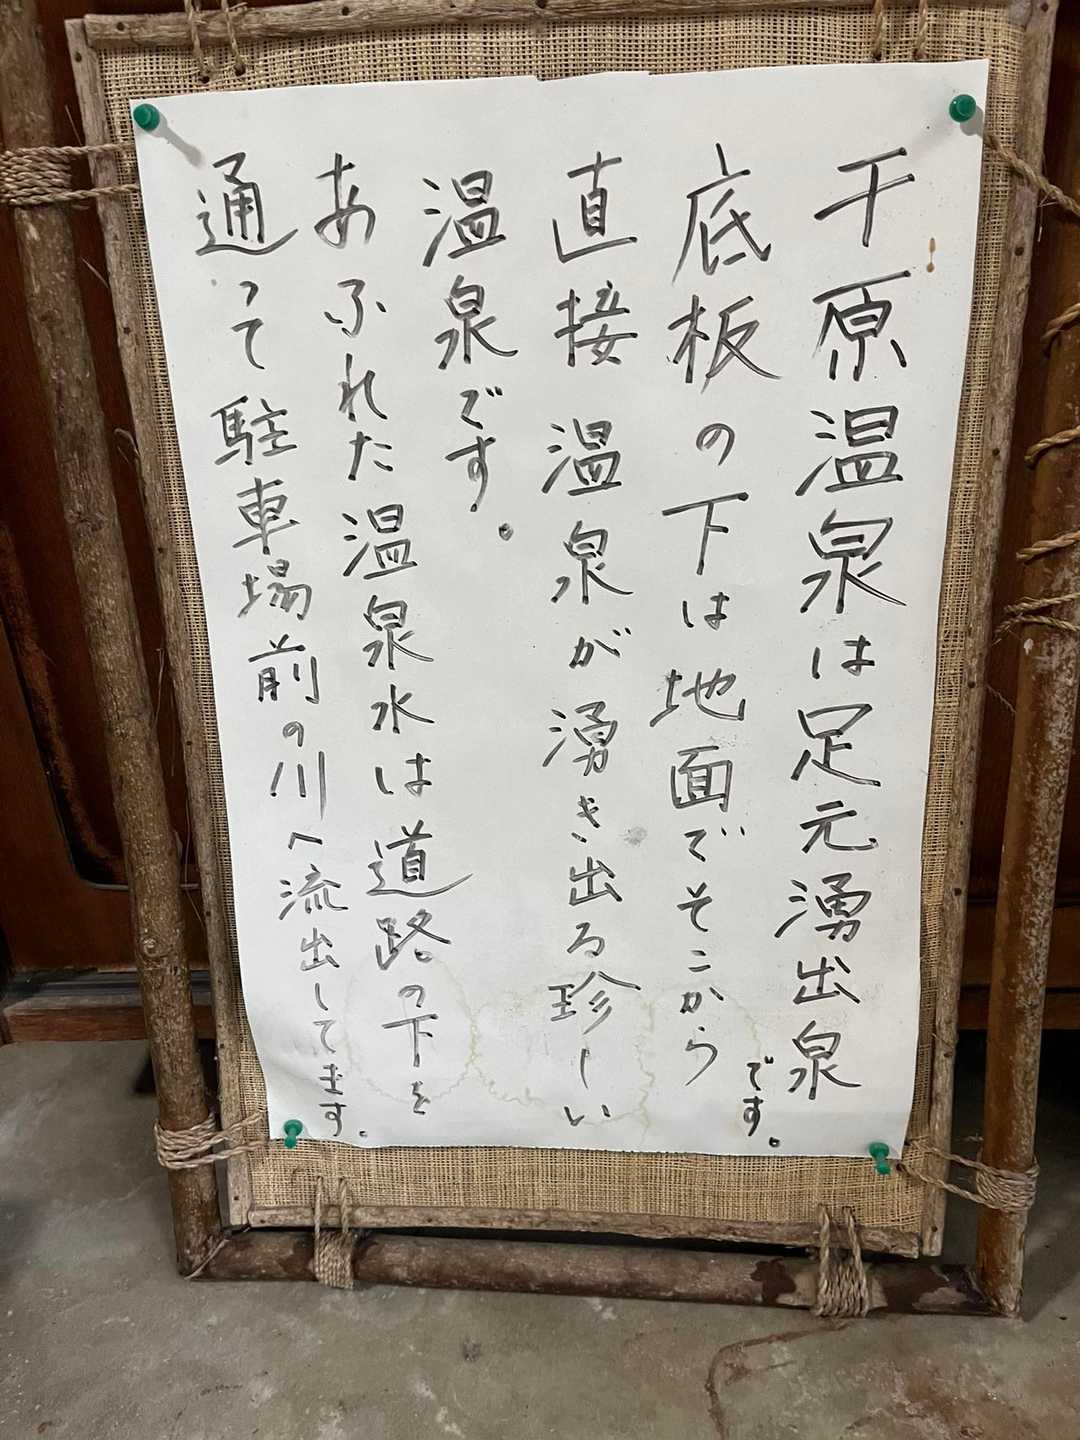 千原温泉は足元湧出泉
です。
底板の下は地面でそこから
直接温泉が湧き出る珍しい
温泉です。
あふれた温泉水は道路の下を
通って駐車場前の川へ流出してます。